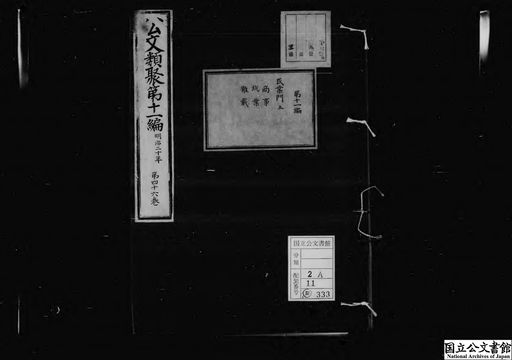 公文類聚第十一編
明治二十年
第四十六巻
第十一編
民業門上
商事
坑業
雑載
国立公文書館
分類
配架番号
2 A
11
333
国立公文書館
National Archives of Japan